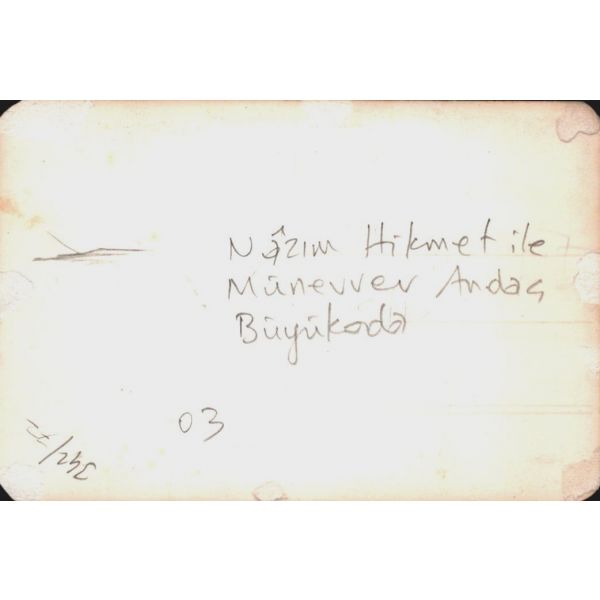 Nâzım Hikmet ile
Münevver Andaç
Büyükada
03